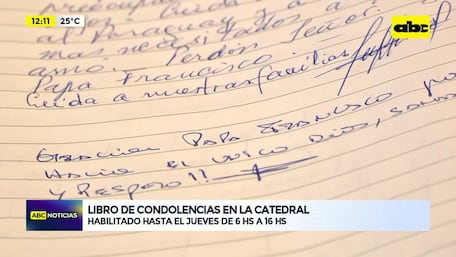 12:11 25°C
abc
al Paraguay y a
mas necesitados
amo. Perdón Señor.
Papa Francisco.
Cuida a nuestras familias
Gracias PAPA FRANCISCO
Hacia el UNICO DIOS,
y Respero!!
ABC NOTICIAS
LIBRO DE CONDOLENCIAS EN LA CATEDRAL
HABILITADO HASTA EL JUEVES DE 6 HS A 16 HS